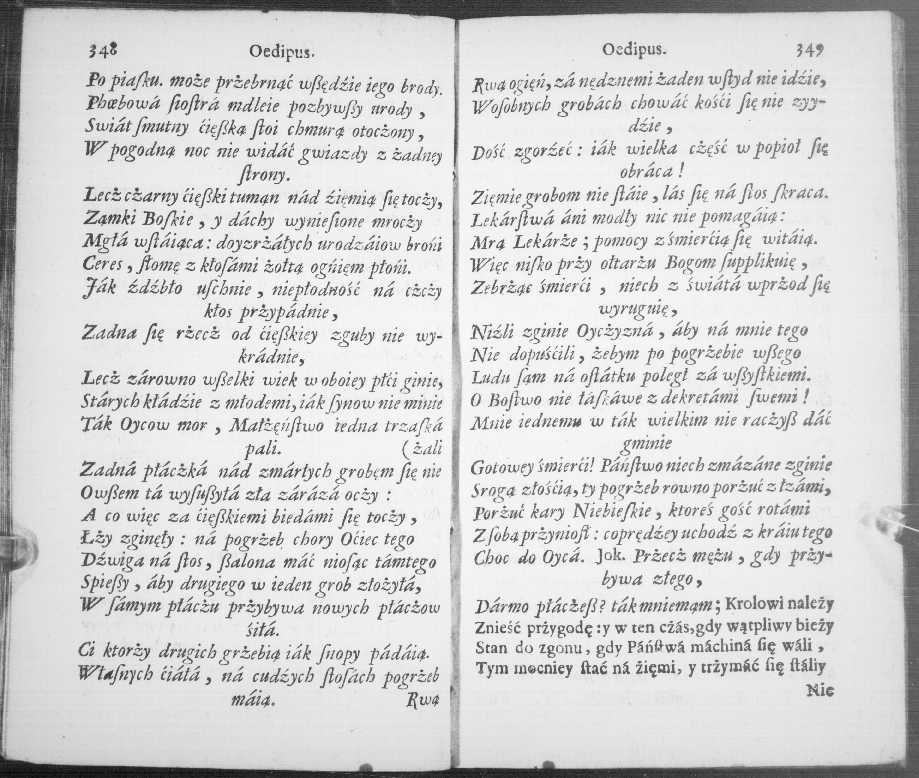 348
Oedipus.
Po piasku. może przebrnąć wßędźie iego brody.
Phœbowá śiostrá mdleie pozbywßy urody,
Swiát smutny ćięßką stoi chmurą otoczony,
W pogodną noc nie widáć gwiazdy z żadney
strony.
Lecż cżarny ćięßki tumąn nád źięmią się tocży,
Zámki Boskie, y dáchy wyniesione mrocży
Mgłá wstáiąca: doyzrżáłych urodzáiow brońi
Ceres, słomę z kłosámi żołtą ogńięm płońi.
Ják źdźbło uschnie, niepłodność ná cżcży
kłos przypádnie,
Zadna się rżecż od ćięßkiey zguby nie wy-
krádnie,
Lecż zárowno wßelki wiek w oboiey płći ginie,
Stárych kłádźie z młodemi, iák synow nie minie
Ták Oycow mor, Małżęństwo iedna trzaská
pali. (żali
Zadná płácżká nád zmárłych grobęm się nie
Owßem tá wysußyłá zła zárázá ocży:
A co więc za ćięßkiemi biedámi się tocży,
Łży zginęły: ná pogrżeb chory Oćiec tego
Dźwiga ná stos, ßalona máć niosąc támtego
Spießy, áby drugiego w ieden grob złożyłá,
W sámym płácżu przybywa nowych płácżow
śiłá.
Ci ktorży drugich grżebią iák snopy pádáią.
Własnych ćiáłá, ná cudźych stosách pogrżeb
máią.
Rwą
Oedipus.
349
Rwą ogięń, zá nędznemi żaden wstyd nie idźie,
W osobnych grobách chowáć kośći się nie zyy-
dźie,
Dość zgorźeć: iák wielka cżęść w popioł się
obráca!
Zięmie grobom nie stáie, lás się ná stos skraca.
Lekárstwá áni modły nic nie pomagáią:
Mrą Lekárże; pomocy z śmierćią się witáią.
Więc nisko przy ołtarżu Bogom supplikuię,
Zebrżąc śmierći, niech z świátá wprżod się
wyruguię,
Niźli zginie Oycżyzná, áby ná mnie tego
Nie dopuśćili, żebym po pogrżebie wßego
Ludu sąm ná ostátku poległ zá wßystkiemi.
O Bostwo nie łáskáwe z dekretámi swemi!
Mnie iednemu w ták wielkim nie racżyß dáć
gminie
Gotowey śmierći! Páństwo niech zmázáne zginie
Srogą złośćią, ty pogrżeb rowno porżuć z łzámi,
Porżuć kary Niebieskie, ktoreś gość rotámi
Z sobą prżyniosł: coprędzey uchodź z kráiu tego
Choc do Oycá. Jok. Przecż mężu, gdy prży-
bywa złego,
Dármo płácżeß? ták mniemąm; Krolowi należy
Znieść przygodę: y w ten cżás, gdy wątpliwy bieży
Stan do zgonu, gdy Páństwá máchiná się wáli,
Tym mocniey stáć ná źięmi, y trżymáć się stáliy
Nie